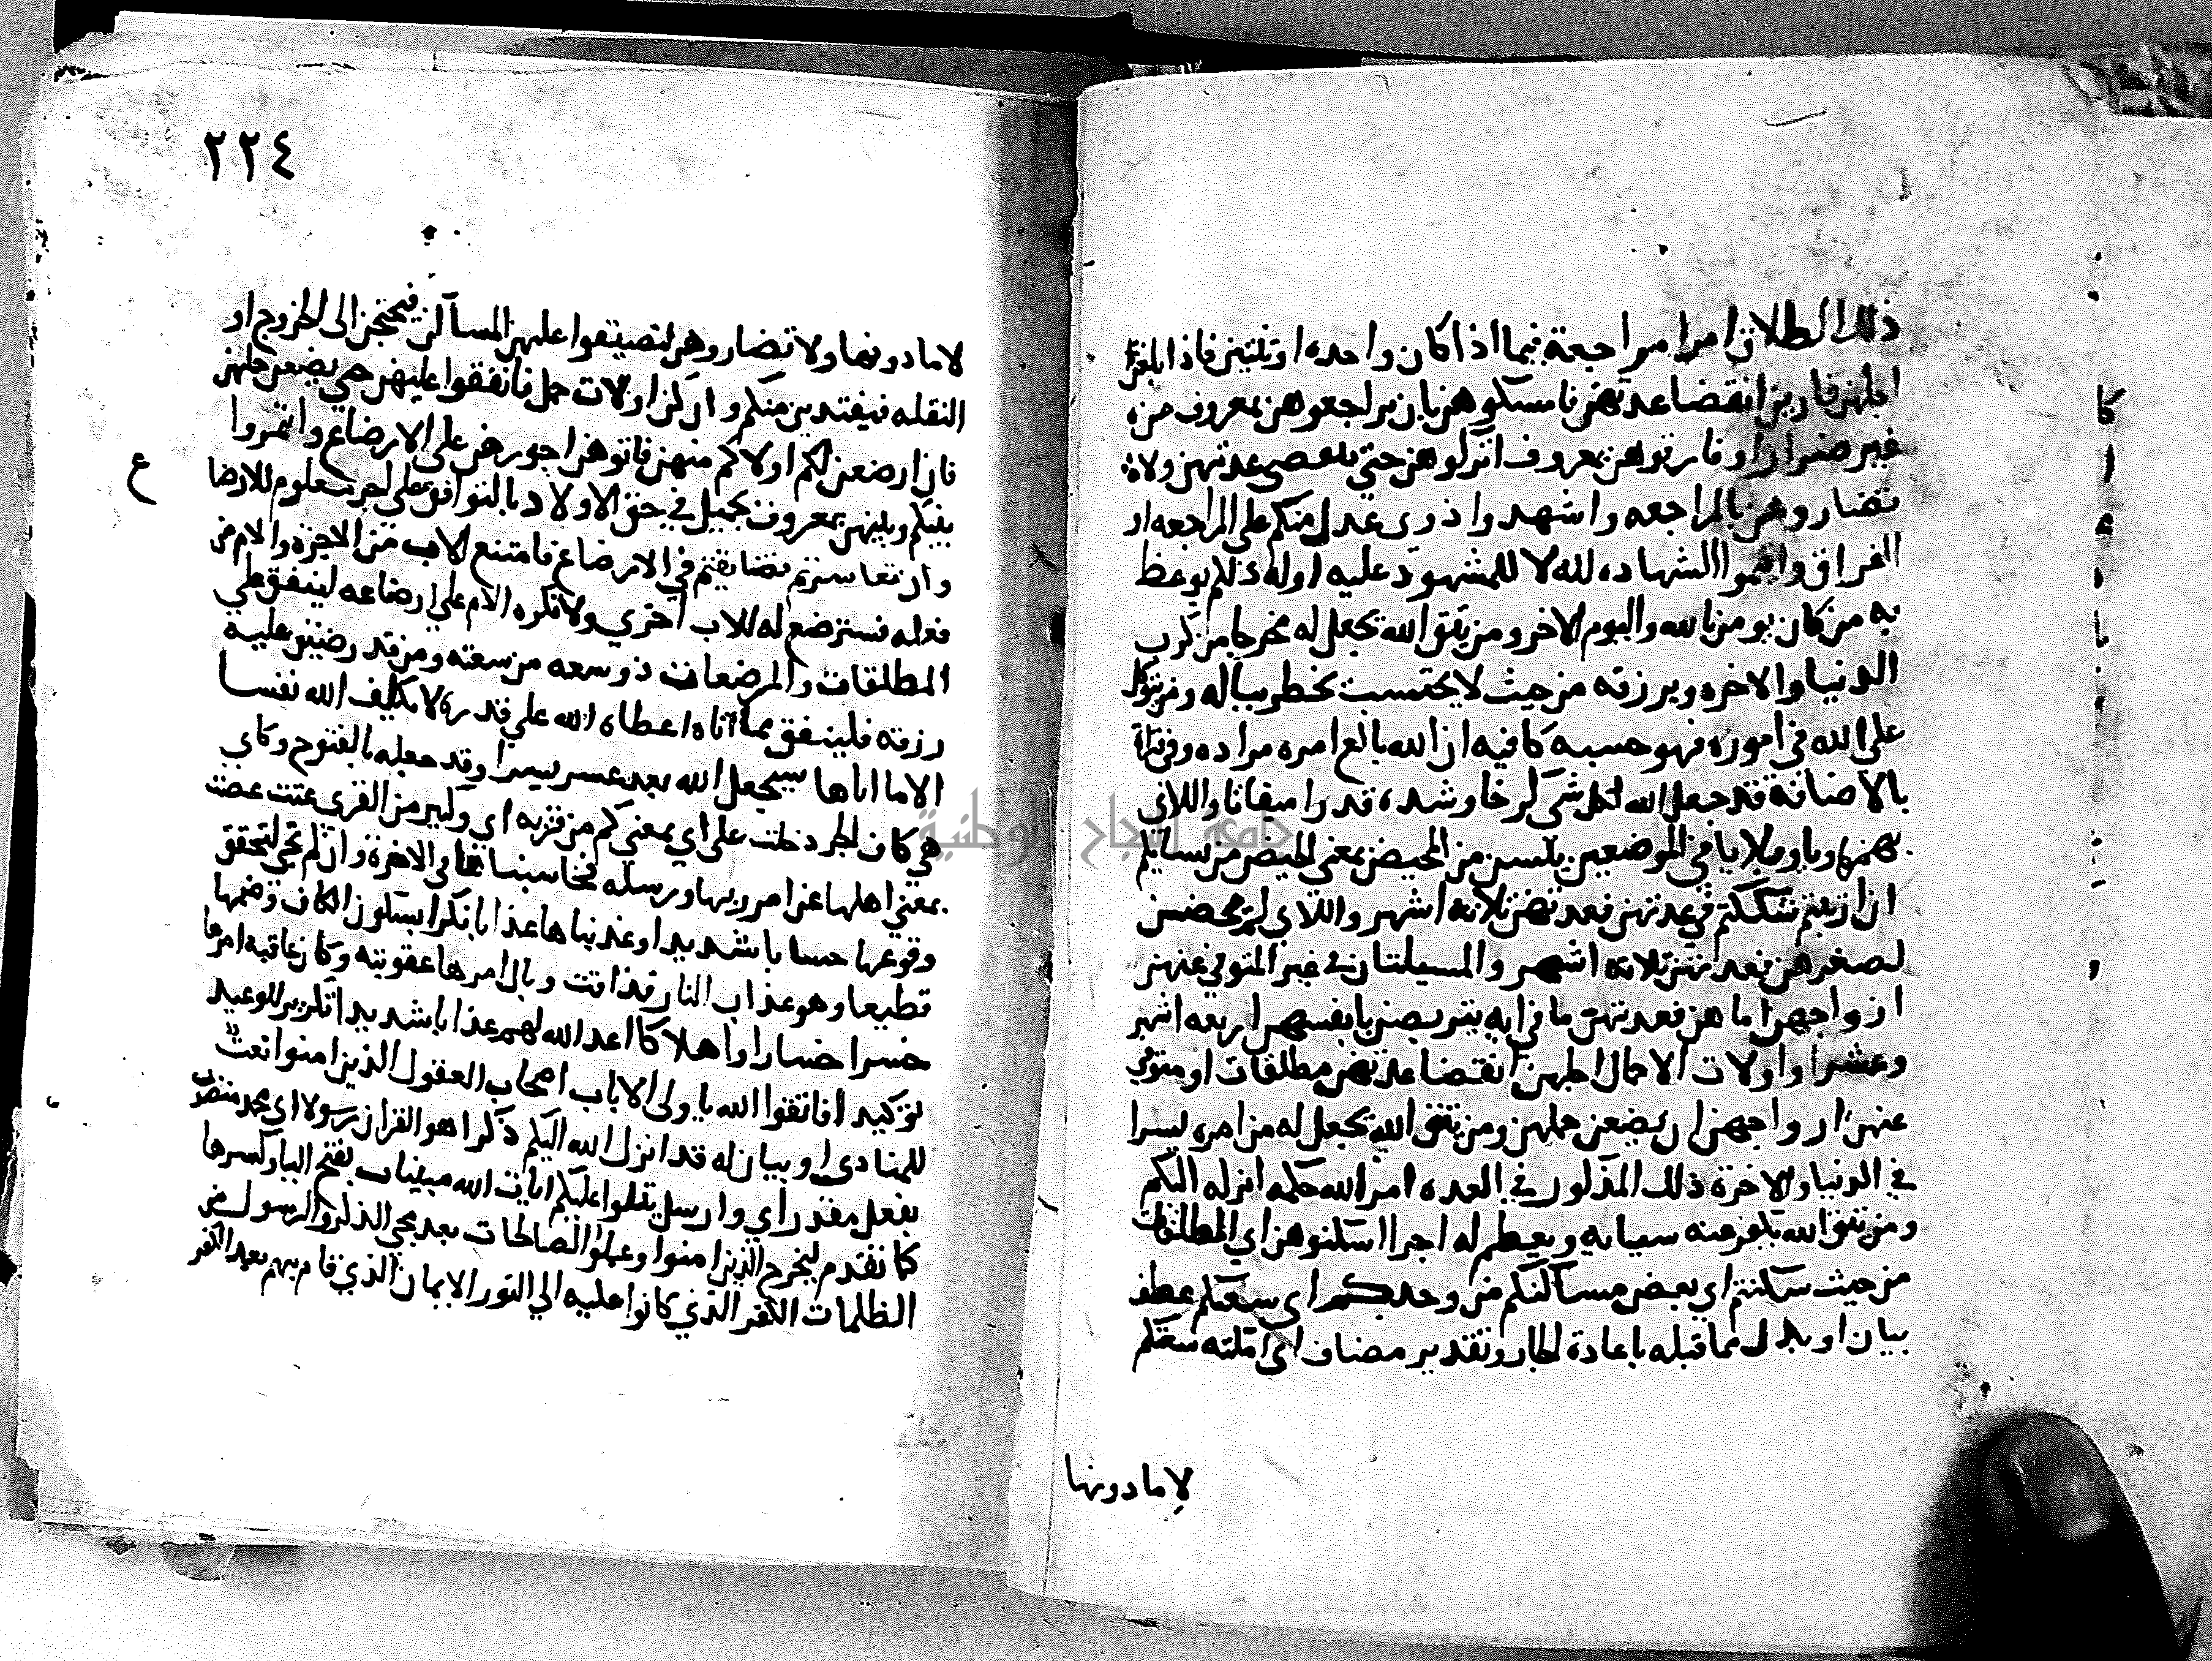 ذلك الطلاق امرا مراجعة فيما اذا كان واحده او ثنتين فاذا بلغن
اجلهن قاربن انقضا عدتهن فامسكوهن بان يراجعوهن بمعروف من
غير ضرار او فارقوهن بمعروف اتركوهن حتي تنقضي عدتهن ولا
تضاروهن بالمراجعه واشهدوا ذوي عدل منكم علي المراجعه او
الفراق واقيموا الشهاده لله لا للمشهود عليه اوله ذلكم يوعظ
به من كان يومن بالله واليوم الاخر ومن يتق الله يجعل له مخرجا من كرب
الدنيا والاخره ويرزقه من حيث لا يحتسب يخطر بباله ومن يتوكل
علي الله في اموره فهو حسبه كافيه ان الله بالغ امره مراده وفي قراة
بالاضافة قد جعل الله لكل شي كرخا وشده قدرا ميقاتا واللاي
بهمزة ويا وبلا يا في الموضعين يئسن من المحيض بمعني الحيض من نسايكم
ان ارتبتم شككتم في عدتهن فعدتهن ثلاثه اشهر واللاي لم يحضن
لصغرهن فعدتهن ثلاثه اشهر والمسيلتان في غير المتوفي عنهن
ازواجهن اما هن فعدتهن ما في ايه يتربصن بانفسهن اربعه اشهر
وعشرا واولات الاحمال اجلهن انقضا عدتهن مطلقات او متوفي
عنهن ازواجهن ان يضعن حملهن ومن يتق الله يجعل له من امره يسرا
في الدنيا والاخرة ذلك المذكور في العده امر الله حكمه انزله اليكم
ومن يتق الله يكفر عنه سياته ويعظم له اجرا اسكنوهن اي المطلقات
من حيث سكنتم اي بعض مساكنكم من وجدكم اي سعتكم عطف
بيان او بدل مما قبله باعادة الجار وتقدير مضاف اي امكنه سعتكم
لا ما دونها
٢٢٤
لا ما دونها ولا تضاروهن لتضيقوا عليهن المساكن فيحتجن الى الخروج او
النقله فيفتدين منكم وان كن اولات حمل فانفقوا عليهن حتي يضعن حملهن
فان ارضعن لكم اولادكم منهن فاتوهن اجورهن علي الارضاع واتمروا
بينكم وبينهن بمعروف بجميل في حق الاولاد بالتوافق علي اجر معلوم للارضا
ع
وان تعاسرتم تضايقتم في الارضاع فامتنع الاب من الاجرة والام من
فعله فسترضع له للاب اخري ولا تكره الام علي ارضاعه لينفق علي
المطلقات والمرضعات ذو سعه من سعته ومن قدر ضيق عليه
رزقه فلينفق مما آتاه اعطاه الله علي قدره لا يكلف الله نفسا
الا ما اتاها سيجعل الله بعد عسر يسرا وقد جعله بالفتوح وكاي
هي كاف الجر دخلت علي اي بمعني كم من قريه اي وكثير من القري عتت عصت
بمعني اهلها عن امر ربها ورسله فحاسبناها في الاخرة وان لم تجي لتحقق
وقوعها حسابا شديدا وعذبناها عذابا نكرا بسكون الكاف وضمها
فظيعا وهو عذاب النار فذاقت وبال امرها عقوبته وكان عاقبه امرها
خسرا خسارا واهلاكا اعد الله لهم عذابا شديدا تكرير الوعيد
توكيدا فاتقوا الله يا ولي الالباب اصحاب العقول الذين امنوا نعت
للمنادي او بيان له قد انزل الله اليكم ذكرا هو القران رسولا اي محمد منصوب
بفعل مقدر اي وارسل يتلوا عليكم ايات الله مبينات بفتح اليا وكسرها
كما تقدم ليخرج الذين امنوا وعملوا الصالحات بعد مجي الذكر والرسول من
الظلمات الكفر الذي كانوا عليه الي النور الايمان الذي قام بهم بعد الكفر
جامعة النجاح الوطنية